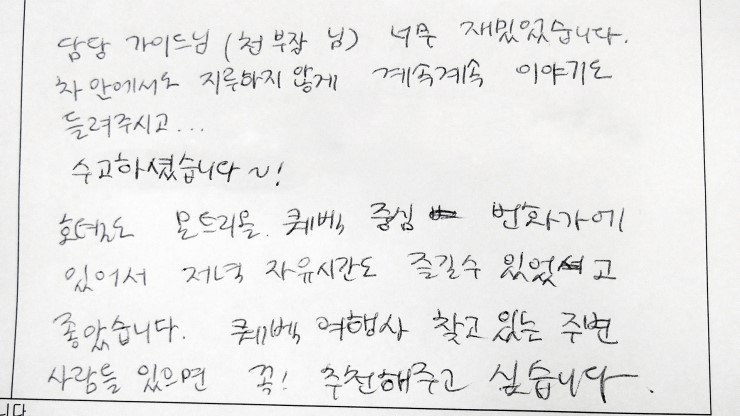 담당 가이드님 (천 부장 님) 너무 재밌었습니다.
차 안에서도 지루하지 않게 계속계속 이야기도
들려주시고...
수고하셨습니다~!
호텔도 몬트리올. 퀘벡 중심 번화가에
있어서 저녁 자유시간도 즐길수 있었고
좋았습니다. 퀘벡 여행사 찾고 있는 주변
사람들 있으면 꼭! 추천해주고 싶습니다.
니다